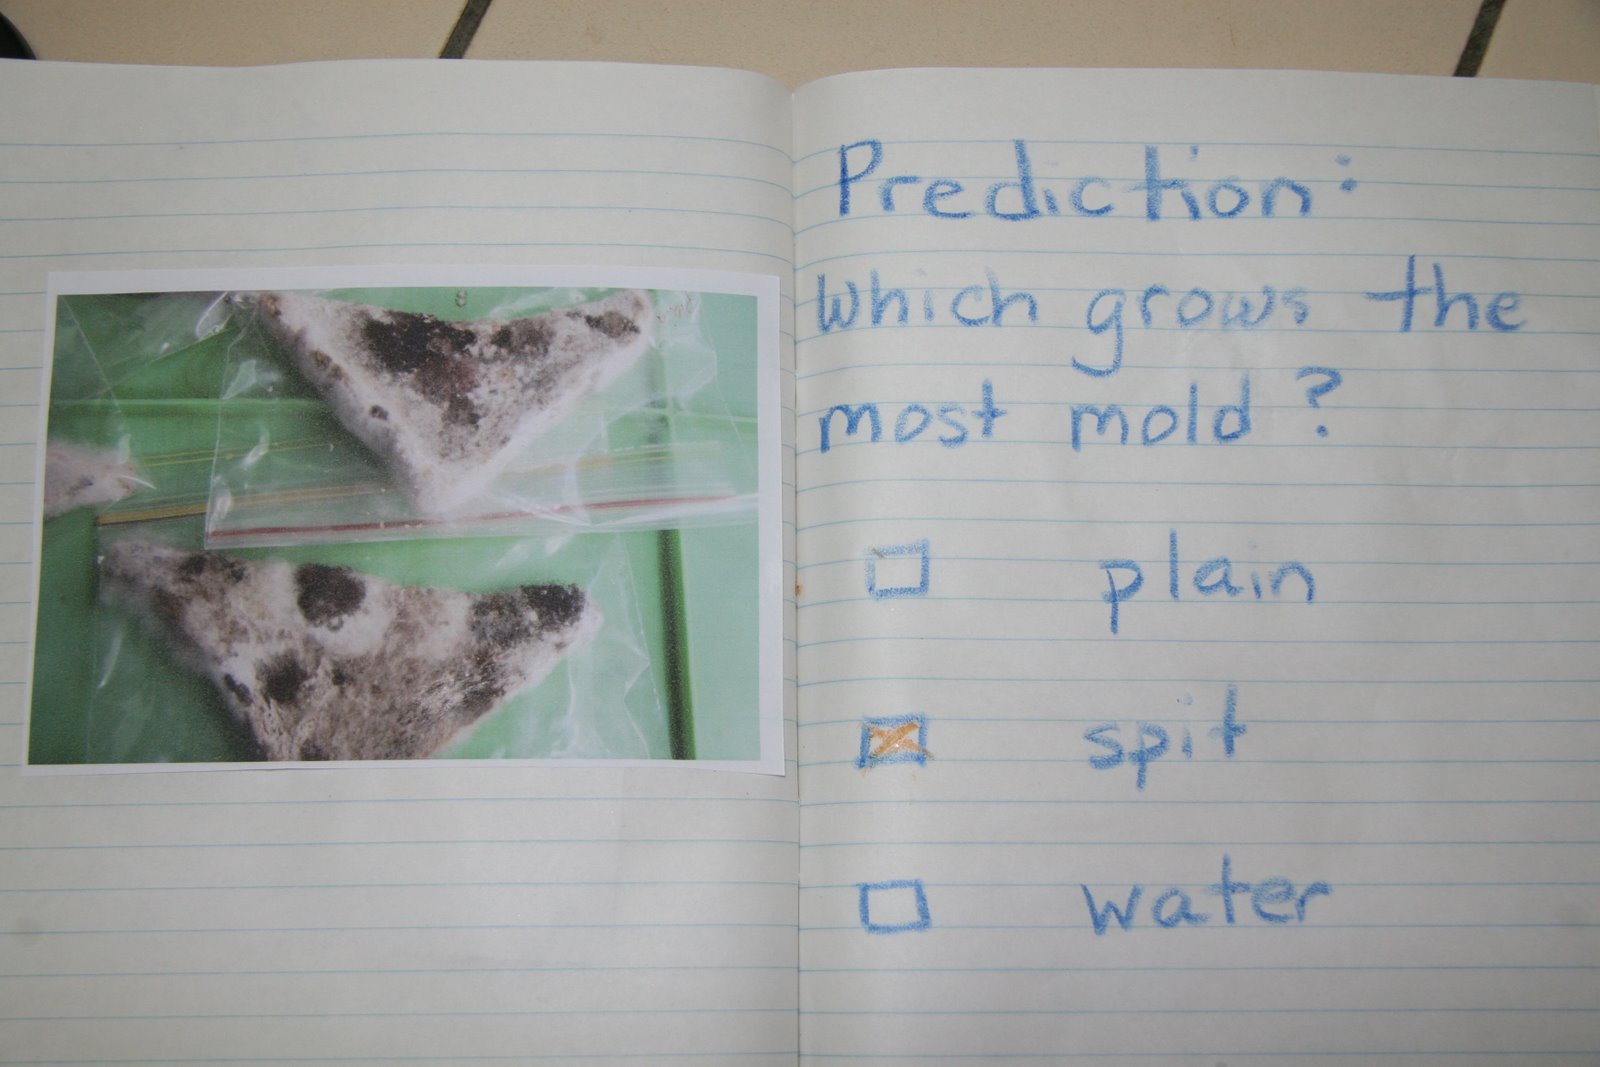 Prediction:
Which grows the
most mold?
plain
spit
water